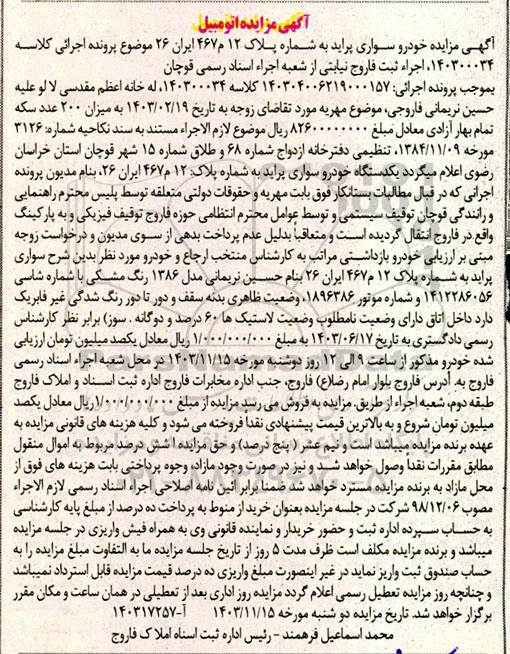 آگهی مزایده اتومبیل
آگهی مزایده خودرو سواری پراید به شماره پلاک ۱۲ م۴۶۷ ایران ۲۶ موضوع پرونده اجرائی کلاسه
۱۴۰۳۰۰۰۳۴، اجراء ثبت فاروج نیابتی از شعبه اجراء اسناد رسمی قوچان
بموجب پرونده اجرائی: ۱۴۰۳۰۴۰۰۶۲۱۹۰۰۰۱۵۷ کلاسه ۱۴۰۳۰۰۰۳۴، له خانه اعظم مقدسی لا لو علیه
حسین نریمانی فاروجی، موضوع مهریه مورد تقاضای زوجه به تاریخ ۱۴۰۳/۰۲/۱۹ به میزان ۲۰۰ عدد سکه
تمام بهار آزادی معادل مبلغ ۸۲۶۰۰۰۰۰۰۰۰ ریال موضوع لازم الاجراء مستند به سند نکاحیه شماره: ۳۱۲۶
مورخه ۱۳۸۴/۱۱/۰۹، تنظیمی دفترخانه ازدواج شماره ۶۸ و طلاق شماره ۱۵ شهر قوچان استان خراسان
رضوی اعلام میگردد یکدستگاه خودرو سواری پراید به شماره پلاک: ۱۲ م۴۶۷ ایران ۲۶، بنام مدیون پرونده
اجرائی که در قبال مطالبات بستانکار فوق بابت مهریه و حقوقات دولتی متعلقه توسط پلیس محترم راهنمایی
و رانندگی قوچان توقیف سیستمی و توسط عوامل محترم انتظامی حوزه فاروج توقیف فیزیکی و به پارکینگ
واقع در فاروج انتقال گردیده است و متعاقباً بدلیل عدم پرداخت بدهی از سوی مدیون و درخواست زوجه
مبنی بر ارزیابی خودرو بازداشتی مراتب به کارشناس منتخب ارجاع و خودرو مورد نظر بدین شرح سواری
پراید به شماره پلاک ۱۲ م۴۶۷ ایران ۲۶ بنام حسین نریمانی مدل ۱۳۸۶ رنگ مشکی با شماره شاسی
۱۴۱۲۲۸۶۰۵۶ و شماره موتور ۱۸۹۶۳۸۶، وضعیت ظاهری بدنه سقف و دور تا دور رنگ شدگی غیر فابریک
دارد داخل اتاق دارای وضعیت نامطلوب وضعیت لاستیک ها ۶۰ درصد و دوگانه . سوز) برابر نظر کارشناس
رسمی دادگستری به تاریخ ۱۴۰۳/۰۶/۱۷ به مبلغ ۱/۰۰۰/۰۰۰/۰۰۰ ریال معادل یکصد میلیون تومان ارزیابی
شده خودرو مذکور از ساعت ۹ الی ۱۲ روز دوشنبه مورخه ۱۴۰۳/۱۱/۱۵ در محل شعبه اجراء اسناد رسمی
فاروج به. آدرس فاروج بلوار امام رضا(ع) فاروج، جنب اداره مخابرات فاروج اداره ثبت اسناد و املاک فاروج
طبقه دوم، شعبه اجراء از طریق. مزایده به فروش می رسد مزایده از مبلغ ۱/۰۰۰/۰۰۰/۰۰۰ ریال معادل یکصد
میلیون تومان شروع و به بالاترین قیمت پیشنهادی نقدا فروخته می شود و کلیه هزینه های قانونی مزایده به
عهده برنده مزایده میباشد و نیم عشر ( پنج درصد) و حق مزایده شش درصد مربوط به اموال منقول
مطابق مقررات نقدا وصول خواهد شد و نیز در صورت وجود مازاد، وجوه پرداختی بابت هزینه های فوق از
محل مازاد به برنده مزایده مسترد خواهد شد ضمنا برابر آئین نامه اصلاحی اجراء اسناد رسمی لازم الاجراء
مصوب ۹۸/۱۲/۰۶ شرکت در جلسه مزایده بعنوان خریدار منوط به پرداخت ده درصد از مبلغ پایه کارشناسی
به حساب سپرده اداره ثبت و حضور خریدار و نماینده قانونی وی به همراه فیش واریزی در جلسه مزایده
میباشد و برنده مزایده مکلف است ظرف مدت ۵ روز از تاریخ جلسه مزایده ما به التفاوت مبلغ مزایده را به
حساب صندوق ثبت واریز نماید در غیر اینصورت مبلغ واریزی ده درصد قیمت مزایده قابل استرداد نمیباشد
و چنانچه روز مزایده تعطیل رسمی اعلام گردد مزایده روز اداری بعد از تعطیلی در همان ساعت و مکان مقرر
برگزار خواهد شد. تاریخ مزایده دو شنبه مورخه ۱۴۰۳/۱۱/۱۵ آ-۱۴۰۳۱۷۲۵۷
محمد اسماعیل فرهمند - رئیس اداره ثبت اسناد املاک فاروج